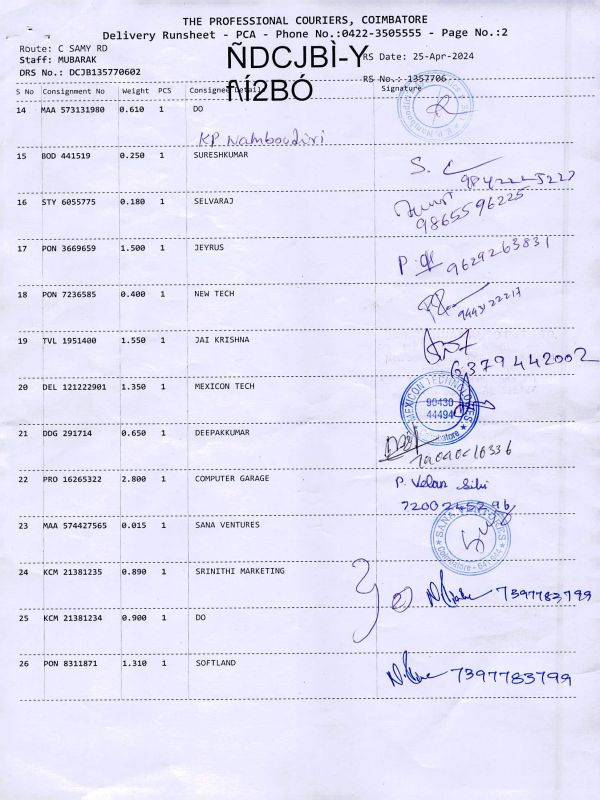 THE PROFESSIONAL COURIERS, COIMBATORE
Delivery Runsheet - PCA - Phone No.:0422-3505555 - Page No.:2
Route: C SAMY RD
Staff: MUBARAK
DRS No.: DCJB135770602
ÑDCJBÌ-Y
RS Date: 25-Apr-2024
RS No.: 1357706
ñÍ2BÓ
S No Consignment No Weight PCS Consignee Details Signature
14 MAA 573131980 0.610 1 DO
KP Namboodiri
15 BOD 441519 0.250 1 SURESHKUMAR
16 STY 6055775 0.180 1 SELVARAJ
9865596225
17 PON 3669659 1.500 1 JEYRUS
9629263831
18 PON 7236585 0.400 1 NEW TECH
9443122217
19 TVL 1951400 1.550 1 JAI KRISHNA
6379442002
20 DEL 121222901 1.350 1 MEXICON TECH
MEXICON TECHNOLOGIES
90430
44494
Coimbatore
21 DDG 291714 0.650 1 DEEPAKKUMAR
22 PRO 16265322 2.800 1 COMPUTER GARAGE
P. Velan
7200245296
23 MAA 574427565 0.015 1 SANA VENTURES
SANA VENTURES
24 KCM 21381235 0.890 1 SRINITHI MARKETING
7397783799
25 KCM 21381234 0.900 1 DO
26 PON 8311871 1.310 1 SOFTLAND
7397783799